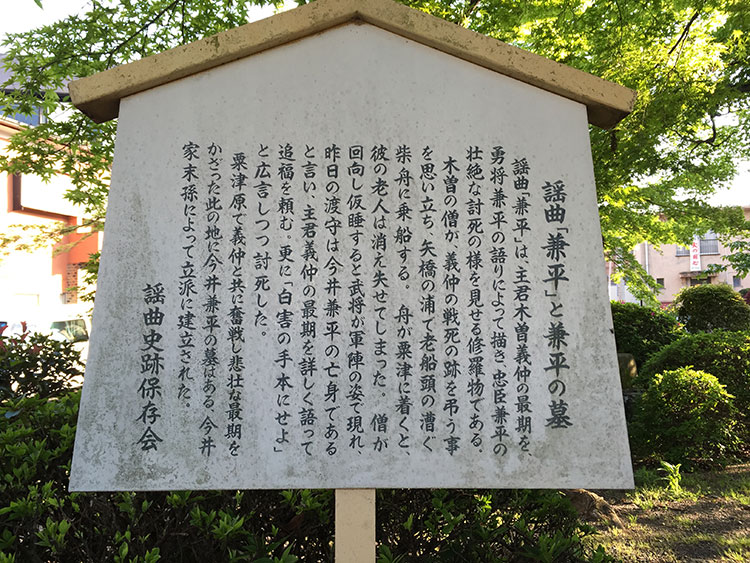 謡曲「兼平」と兼平の墓
謡曲「兼平」は、主君木曽義仲の最期を、
勇将兼平の語りによって描き、忠臣兼平の
壮絶な討死の様を見せる修羅物である。
木曽の僧が、義仲の戦死の跡を弔う事
を思い立ち、矢橋の浦で老船頭の漕ぐ
柴舟に乗船する。舟が粟津に着くと、
彼の老人は消え失せてしまった。僧が
回向し仮睡すると武将が軍陣の姿で現れ、
昨日の渡守は今井兼平の亡身である
と言い、主君義仲の最期を詳しく語って
追福を頼む。更に「自害の手本にせよ」
と広言しつつ討死した。
粟津原で義仲と共に奮戦し悲壮な最期を
かざった此の地に今井兼平の墓はある、今井
家末孫によって立派に建立された。
謡曲史跡保存会